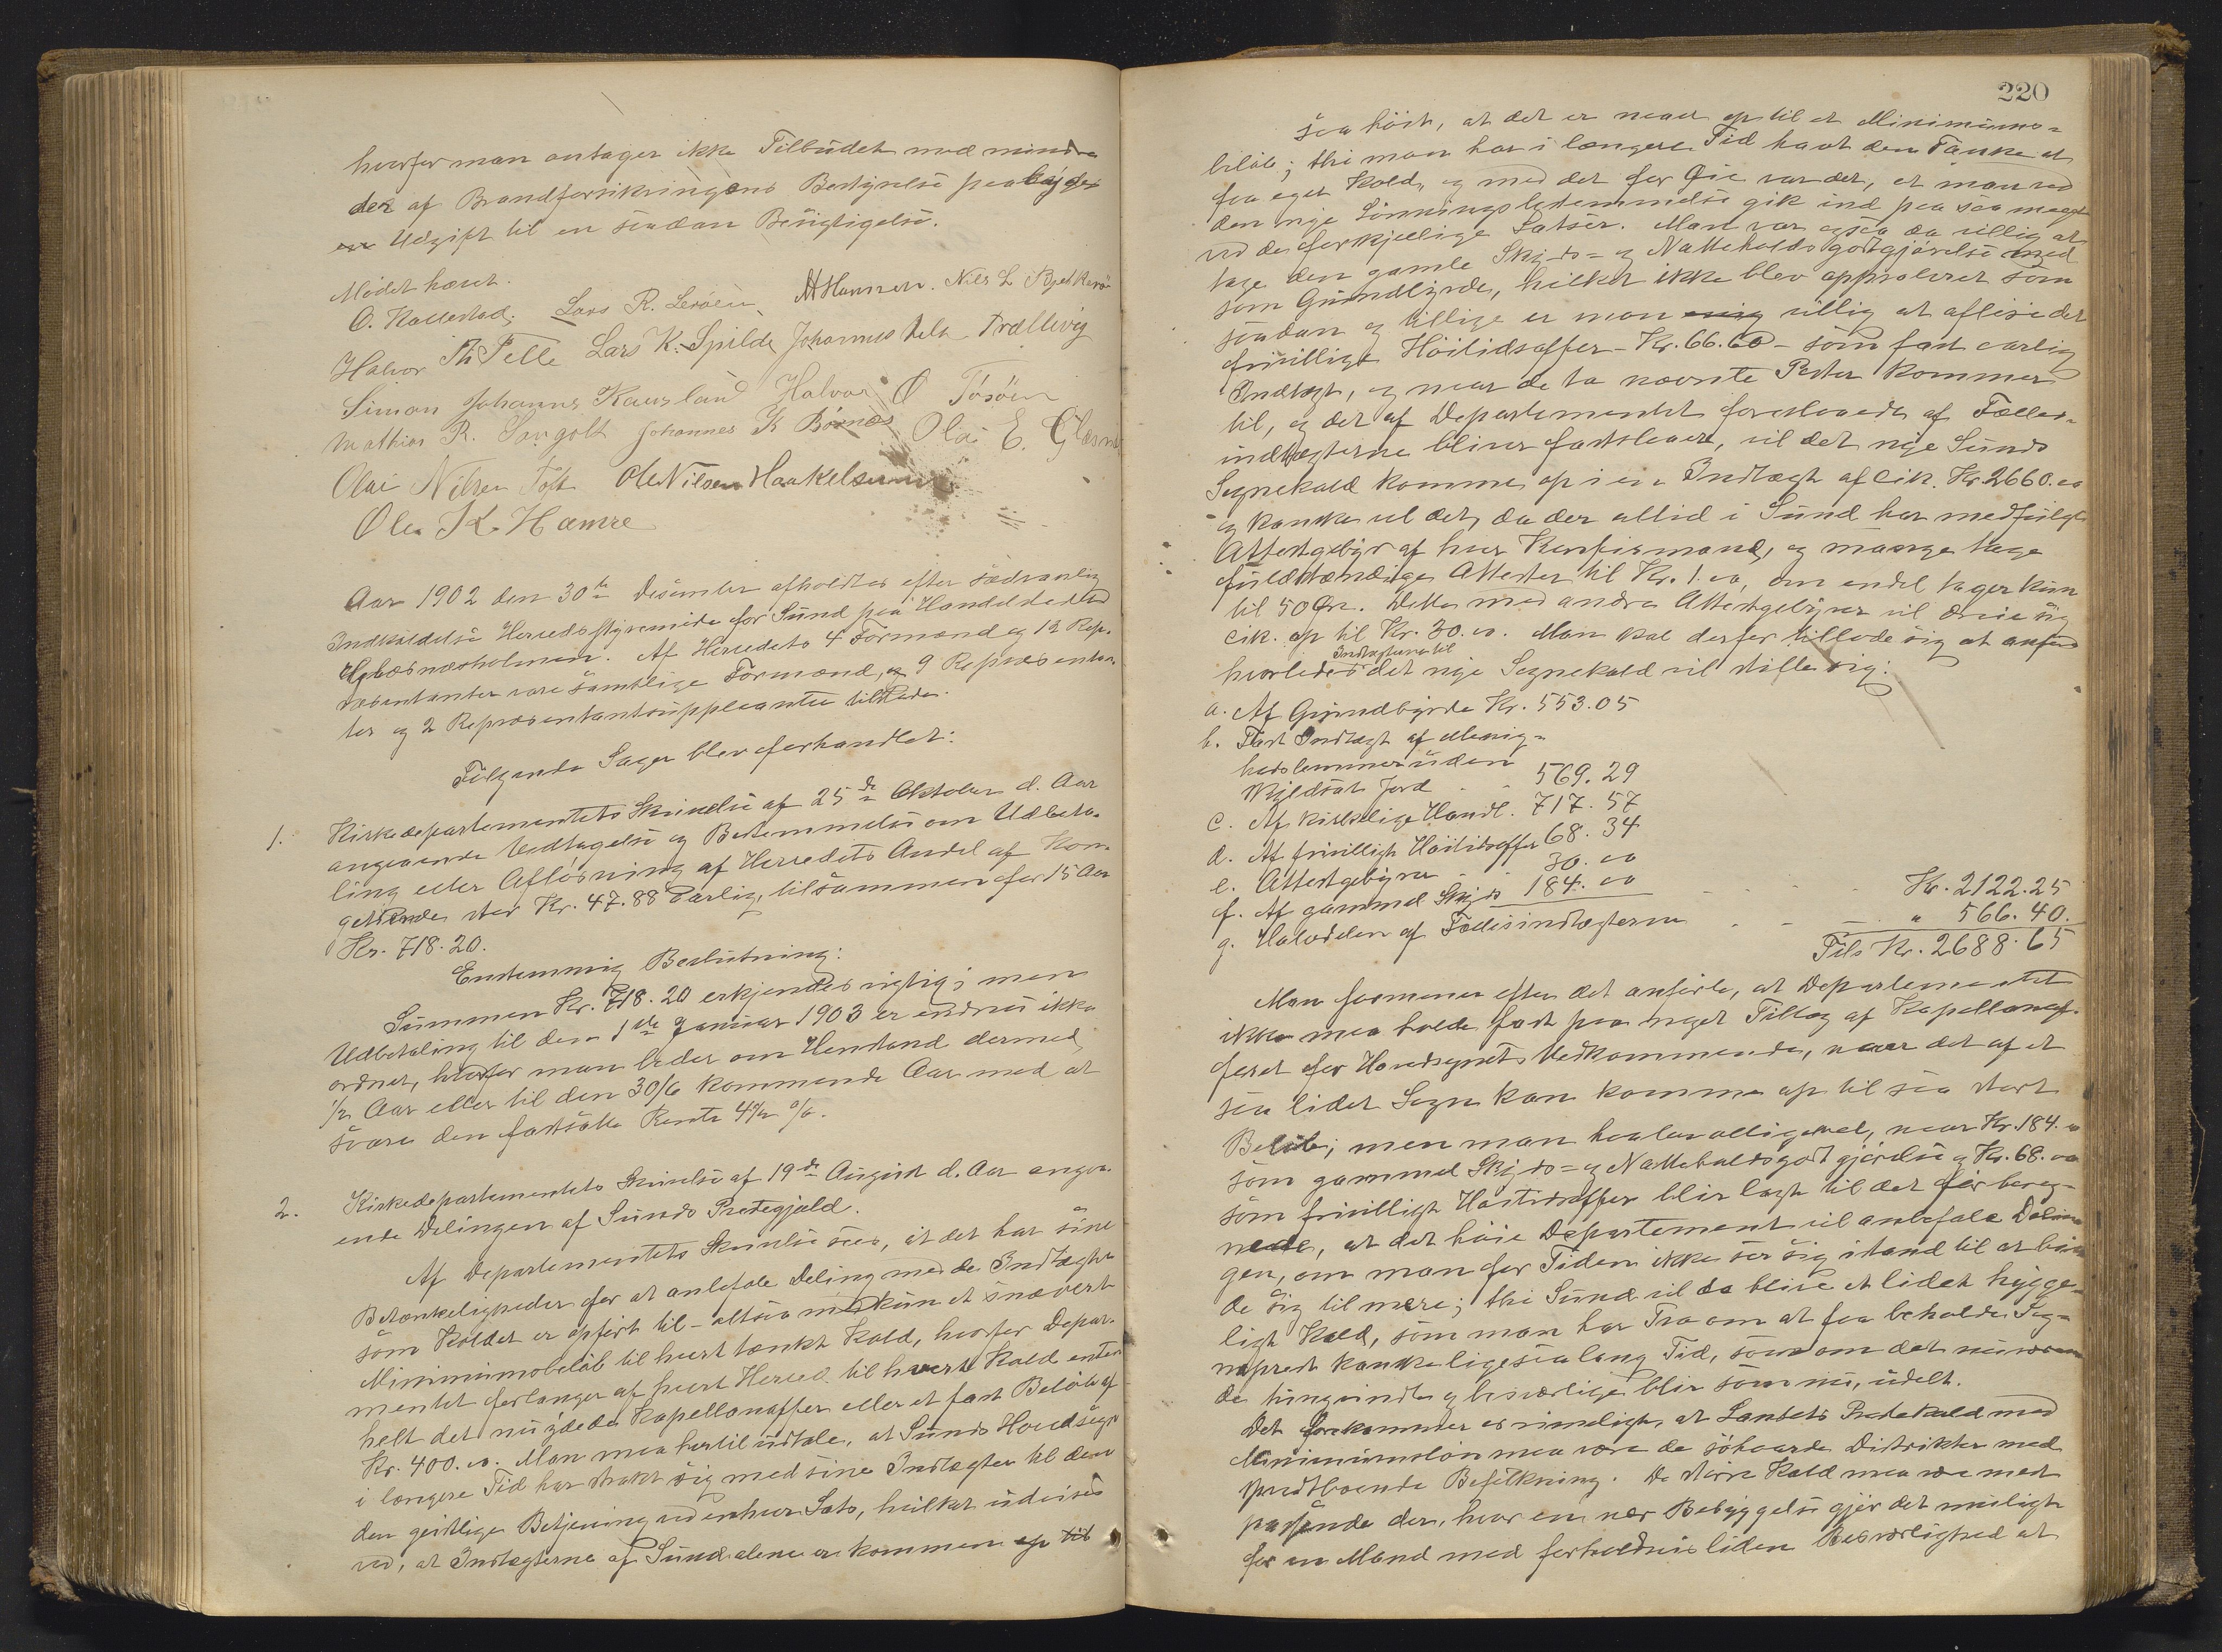 hvorfor man antager ikke Tilbudet med mindre
der af Brandforsikringens Bestyrelse paalægges
en Udgift til en saadan Besigtigelse.
Mödet hævet.
O. Kallestad. Lars R. Leröen A Hansen. Nils L.
Halvor Th Telle Lars K. Spilde Johannes Trællevig
Simon Johannes Kausland Halvor O Tösöen
Mathias R. Sangolt Johannes K Börnæs Olai E. Glæsnes
Olai Nilsen Toft Ole Nilsen Haakelsund
Ole K. Hamre
Aar 1902 den 30te Desember afholdtes efter sædvanlig
Indkaldelse Herredsstyremöde for Sund paa Handelsstedet
Glæsnæsholmen. Af Herredets 4 Formænd og 12 Rep-
ræsentanter vare samtlige Formænd, og 9 Repræsentan-
ter og 2 Repræsentantsuppleanter tilstede.
Fölgende Sager blev forhandlet:
1. Kirkedepartementets Skrivelse af 25de Oktober d. Aar
angaaende Vedtagelse og Bestemmelse om Udbeta-
ling eller Aflösning af Herredets Andel af Kon-
getiende stor Kr. 47.88 aarlig, tilsammen for 15 Aar
Kr. 718.20.
Enstemmig Beslutning:
Summen Kr. 718.20 erkjendes rigtig; men
Udbetaling til den 1ste Januar 1903 er endnu ikke
ordnet, hvorfor man beder om Henstand dermed
1/2 Aar eller til den 30/6 kommende Aar med at
svare den fastsatte Rente 4 1/2 %.
2. Kirkedepartementets Skrivelse af 19de August d. Aar angaa-
ende Delingen af Sunds Prestegjæld.
Af Departementets Skrivelse sees, at det har sine
Betænkeligheder for at anbefale Deling med de Indtægter
som Kaldet er opfört til - altsaa kun et snævert
Minimumsbelöb til hvert tænkt Kald, hvorfor Depar-
mentet forlanger af hvert Herred til hvert Kald enten
helt det nugjældende Kapellanoffer eller et fast Belöb af
Kr. 400.00. Man maa hertil udtale, at Sunds Hovedsogn
i længere Tid har strakt sig med sine Indtægter til den
den geistlige Betjening ved enhver Sats, hvilket udvises
ved, at Indtægterne af Sund alene er kommen op til
220
saa höit, at det er naaet op til et Minimums-
belöb; thi man har i længere Tid havt den Tanke at
faa eget Kald, og med det for Öie var det, at man ved
den nye Lönningsbestemmelse gik ind paa saa meget
ved de forskjellige Satser. Man var ogsaa da villig at
tage den gamle Skyds- og Natteholdsgodtgjörelse med
som Grundbyrde, hvilket ikke blev approberet som
saadan og tillige er man enig villig at aflöse det
frivillige Höitidsoffer - Kr. 66.60 - som fast aarlig
Indtægt, og naar de to nævnte Poster kommer
til, og det af Departementet foreslaaede af Fælles-
indtægterne bliver fastslaaet, vil det nye Sunds
Sognekald komme op i en Indtægt af cik. Kr. 2660.00
og kanske vel det, da der altid i Sund har medfulgt
Attestgebyr af hver Konfirmand, og mange tage
fuldstændige Attester til Kr. 1.00, om endel tager kun
til 50 Öre. Dette med andre Attestgebyrer vil dreie sig
cik. op til Kr. 30.00. Man skal derfor tillade sig at anföre
Indtægterne til
hvorledes det nye Sognekald vil stille sig:
a. Af Grundbyrde Kr. 553.05
b. Fast Indtægt af Menig-
hedslemmer uden
skyldsat Jord 569.29
c. Af kirkelige Handl. 717.57
d. Af frivilligt Höitidsoffer 68.34
e. Attestgebyrer 30.00
f. Af gammel Skyds 184.00 Kr. 2122.25
g. Halvdelen af Fællesindtægterne " 566.40.
Tils Kr. 2688.65
Man formener efter det anförte, at Departementet
ikke maa holde fast paa noget Tillæg af Kapellanof-
feret for Hovedsognets Vedkommende, naar det af et
saa lidet Sogn kan komme op til saa stort
Belöb; men man haaber alligevel, naar Kr. 184.00
som gammel Skyds- og Natteholdsgodtgjörelse og Kr. 68.00
som frivilligt Höitidsoffer blir lagt til det för bereg-
nede, at det höie Departement vil anbefale Delin-
gen, om man for Tiden ikke ser sig istand til at bin-
de sig til mere; thi Sund vil da blive et lidet hygge-
ligt Kald, som man har Tro om at faa beholde Sog-
neprest kanske ligesaa lang Tid, som om det nuværen-
de tungvindte og besværlige blir som nu, udelt.
Det forekommer os rimeligt, at Landets Prestekald med
Minimumslön maa være de söhaarde Distrikter med
spredtboende Befolkning. De större Kald maa være mest
passende der, hvor en nær Bebyggelse gjör det muligt
for en Mand med forholdsvis liden Besværlighed at